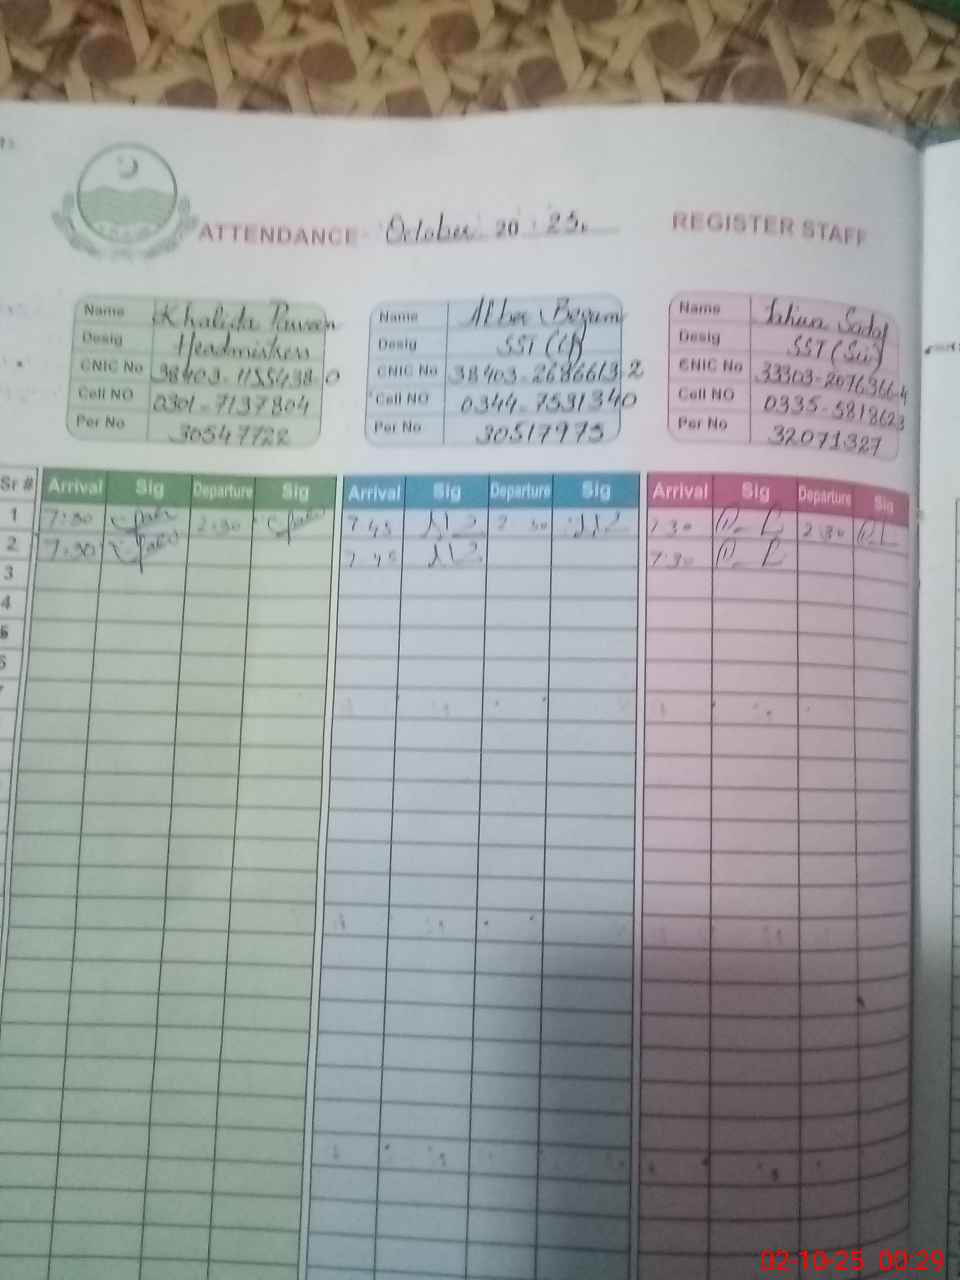 ATTENDANCE October 2025. REGISTER STAFF
Name Khalida Parveen
Desig Headmistress
CNIC No 38403-1155438-0
Cell NO 0301-7137804
Per No 30547722
Name Begum
Desig SST
CNIC No 38403-2686613-2
Cell NO 0344-7531340
Per No 30517975
Name Sadaf
Desig SST (Sci)
CNIC No 33303-2076366-4
Cell NO 0335-5818623
Per No 32071327
Sr # Arrival Sig Departure Sig Arrival Sig Departure Sig Arrival Sig Departure Sig
1 7:30 2:30 7 45 2 30 7 30 2:30
2 7:30 7 45 7:30
3
4
5
6
02-10-25 00:29